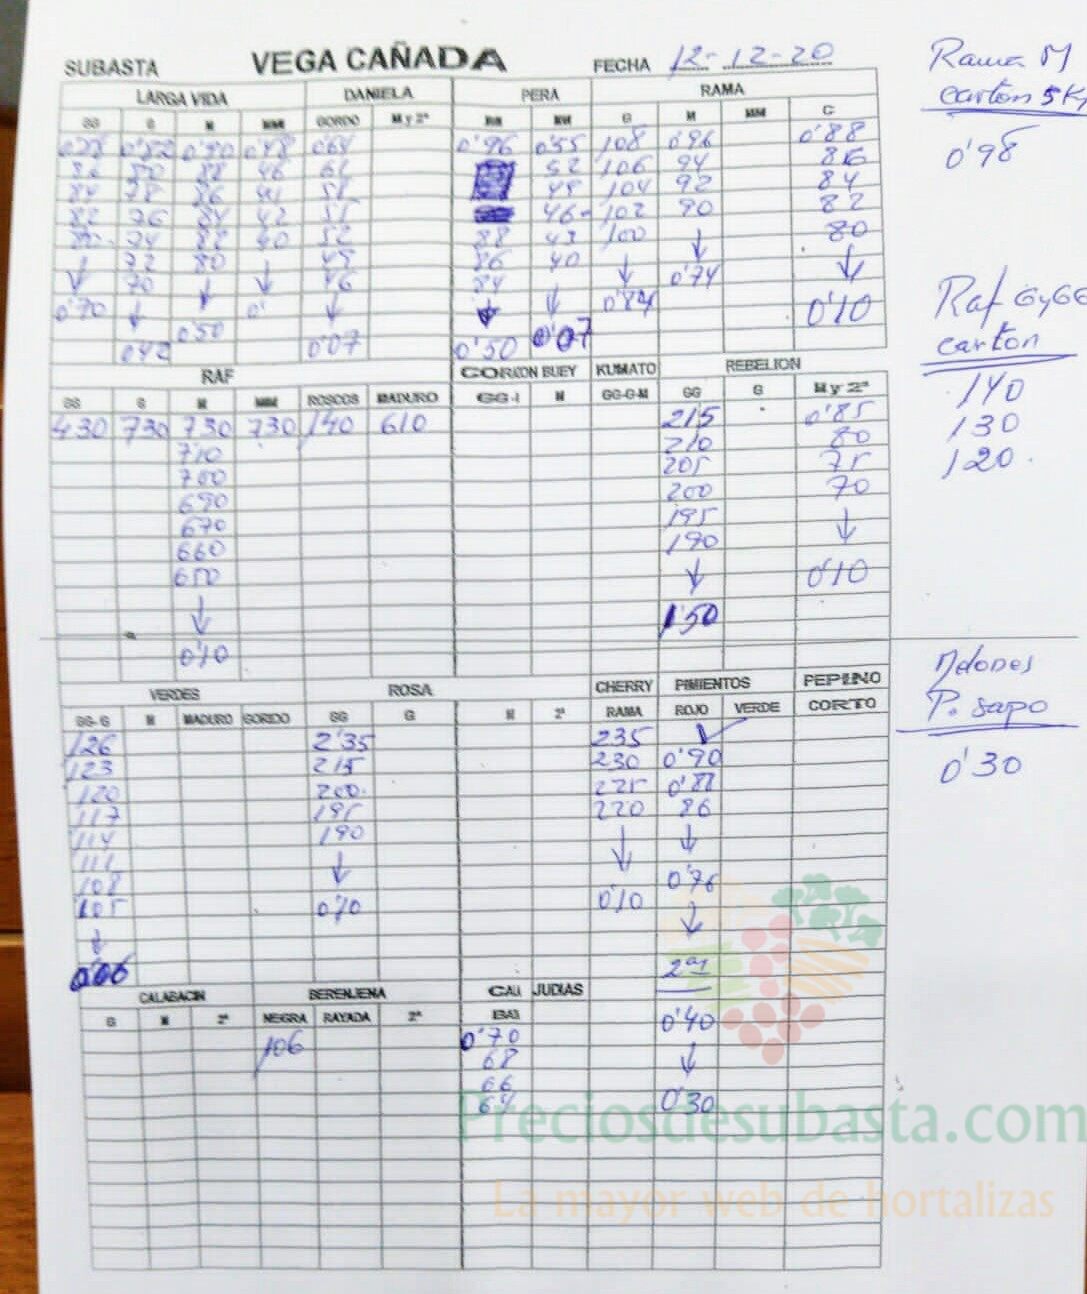 SUBASTA VEGA CAÑADA FECHA 12-12-20
LARGA VIDA DANIELA PERA RAMA
GG G M MM GORDO M y 2ª MM G M MM C
0'82 0'90 0'48 0'64 0'96 0'55 108 0'96 0'88
82 80 88 46 61 52 106 94 86
84 78 86 44 58 104 92 84
82 76 84 42 55 46 102 90 82
80 74 82 40 52 88 43 100 ↓ 80
↓ 72 80 49 86 40 ↓ 0'74 ↓
↓ 70 ↓ ↓ 46 84 ↓ 0'84 0'10
0'70 ↓ 0'50 ↓ ↓ 0'07
0'42 0'07 0'50
RAF CORAZON BUEY KUMATO REBELION
GG G M MM ROSCOS MADURO M GG-G-M GG G M y 2ª
430 730 730 730 140 610 215 0'85
710 210 80
700 205 75
690 200 70
670 195 ↓
660 190
650 ↓ 0'10
↓ 1'50
0'10
VERDES ROSA CHERRY PIMIENTOS PEPINO
GG-G M MADURO GORDO GG G M 2ª RAMA ROJO VERDE CORTO
126 2'35 235
123 215 230 0'90
120 200 225 0'88
117 195 220 86
114 190 ↓ ↓
111 ↓
108 0'10 0'76
105 0'10 ↓
↓ 2ª
0'06
CALABACIN BERENJENA JUDIAS
G M 2ª NEGRA RAYADA 2ª 0'40
106 0'70 ↓
68
66
64 0'30
Rama M
carton 5K
0'98
Raf GyGG
carton
140
130
120
Melones
P. sapo
0'30
Preciosdesubasta.com
La mayor web de hortalizas